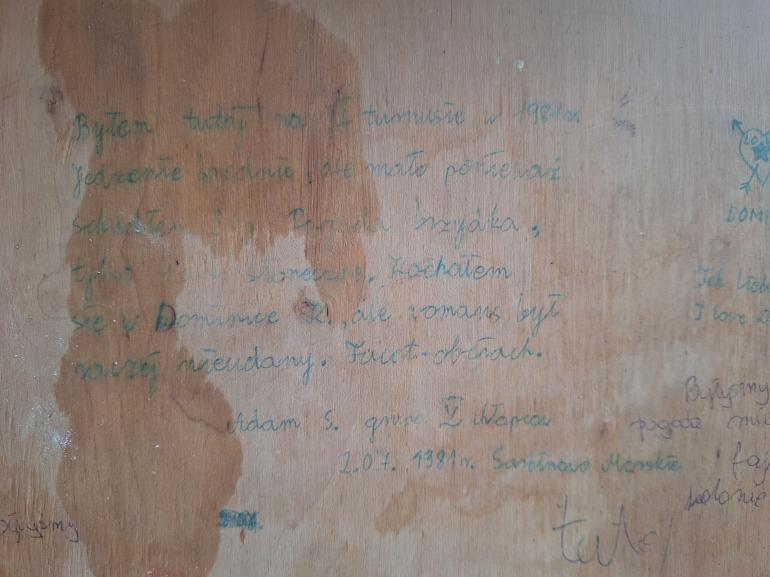 Byłem tutaj na I turnusie w 1981r.
Jedzenie średnie, ale mało ponieważ
schudłem Pogoda brzydka,
tylko słoneczne. Kochałem
się w Dominice K., ale romans był
raczej nieudany. Facet-obciach.
Adam S. grupa V chłopców
2.07. 1981r. Sarbinowo Morskie
DOMI
Ich liebe
I love
Byłyśmy
pogoda
faj
kolonie
tutaj